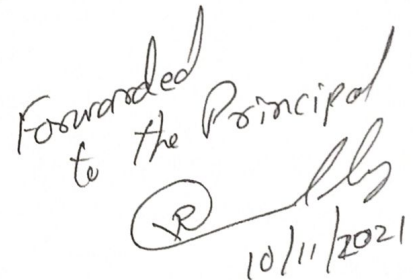 Forwarded
to the Principal
10/11/2021